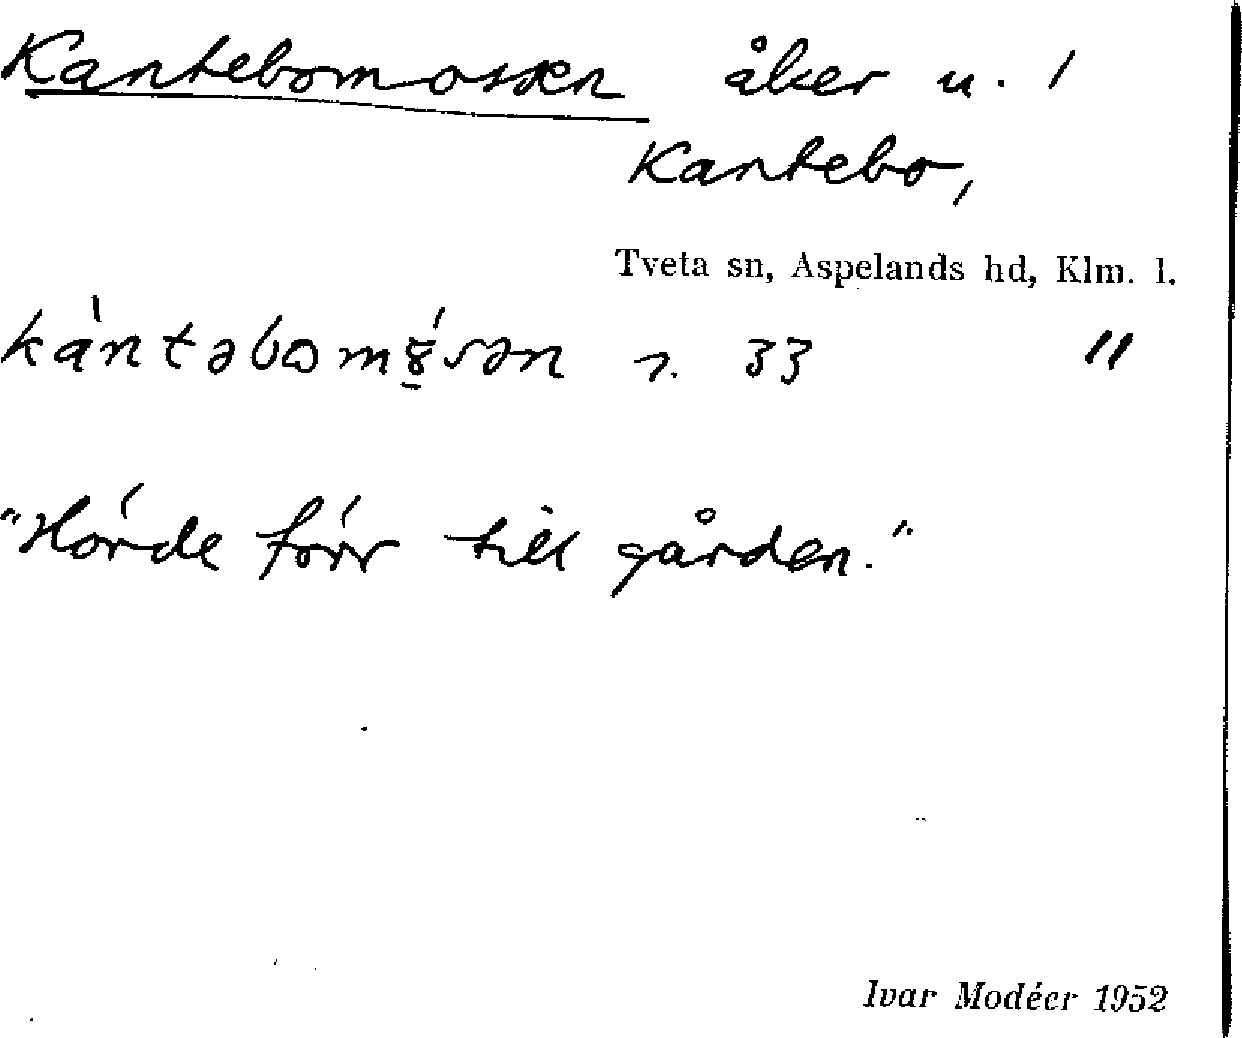 Kantebomossen åker u. 1
Kantebo,
Tveta sn, Aspelands hd, Klm. l.
kàntəbωmɞ́sən r. 33 "
"Hörde förr till gården."
Ivar Modéer 1952